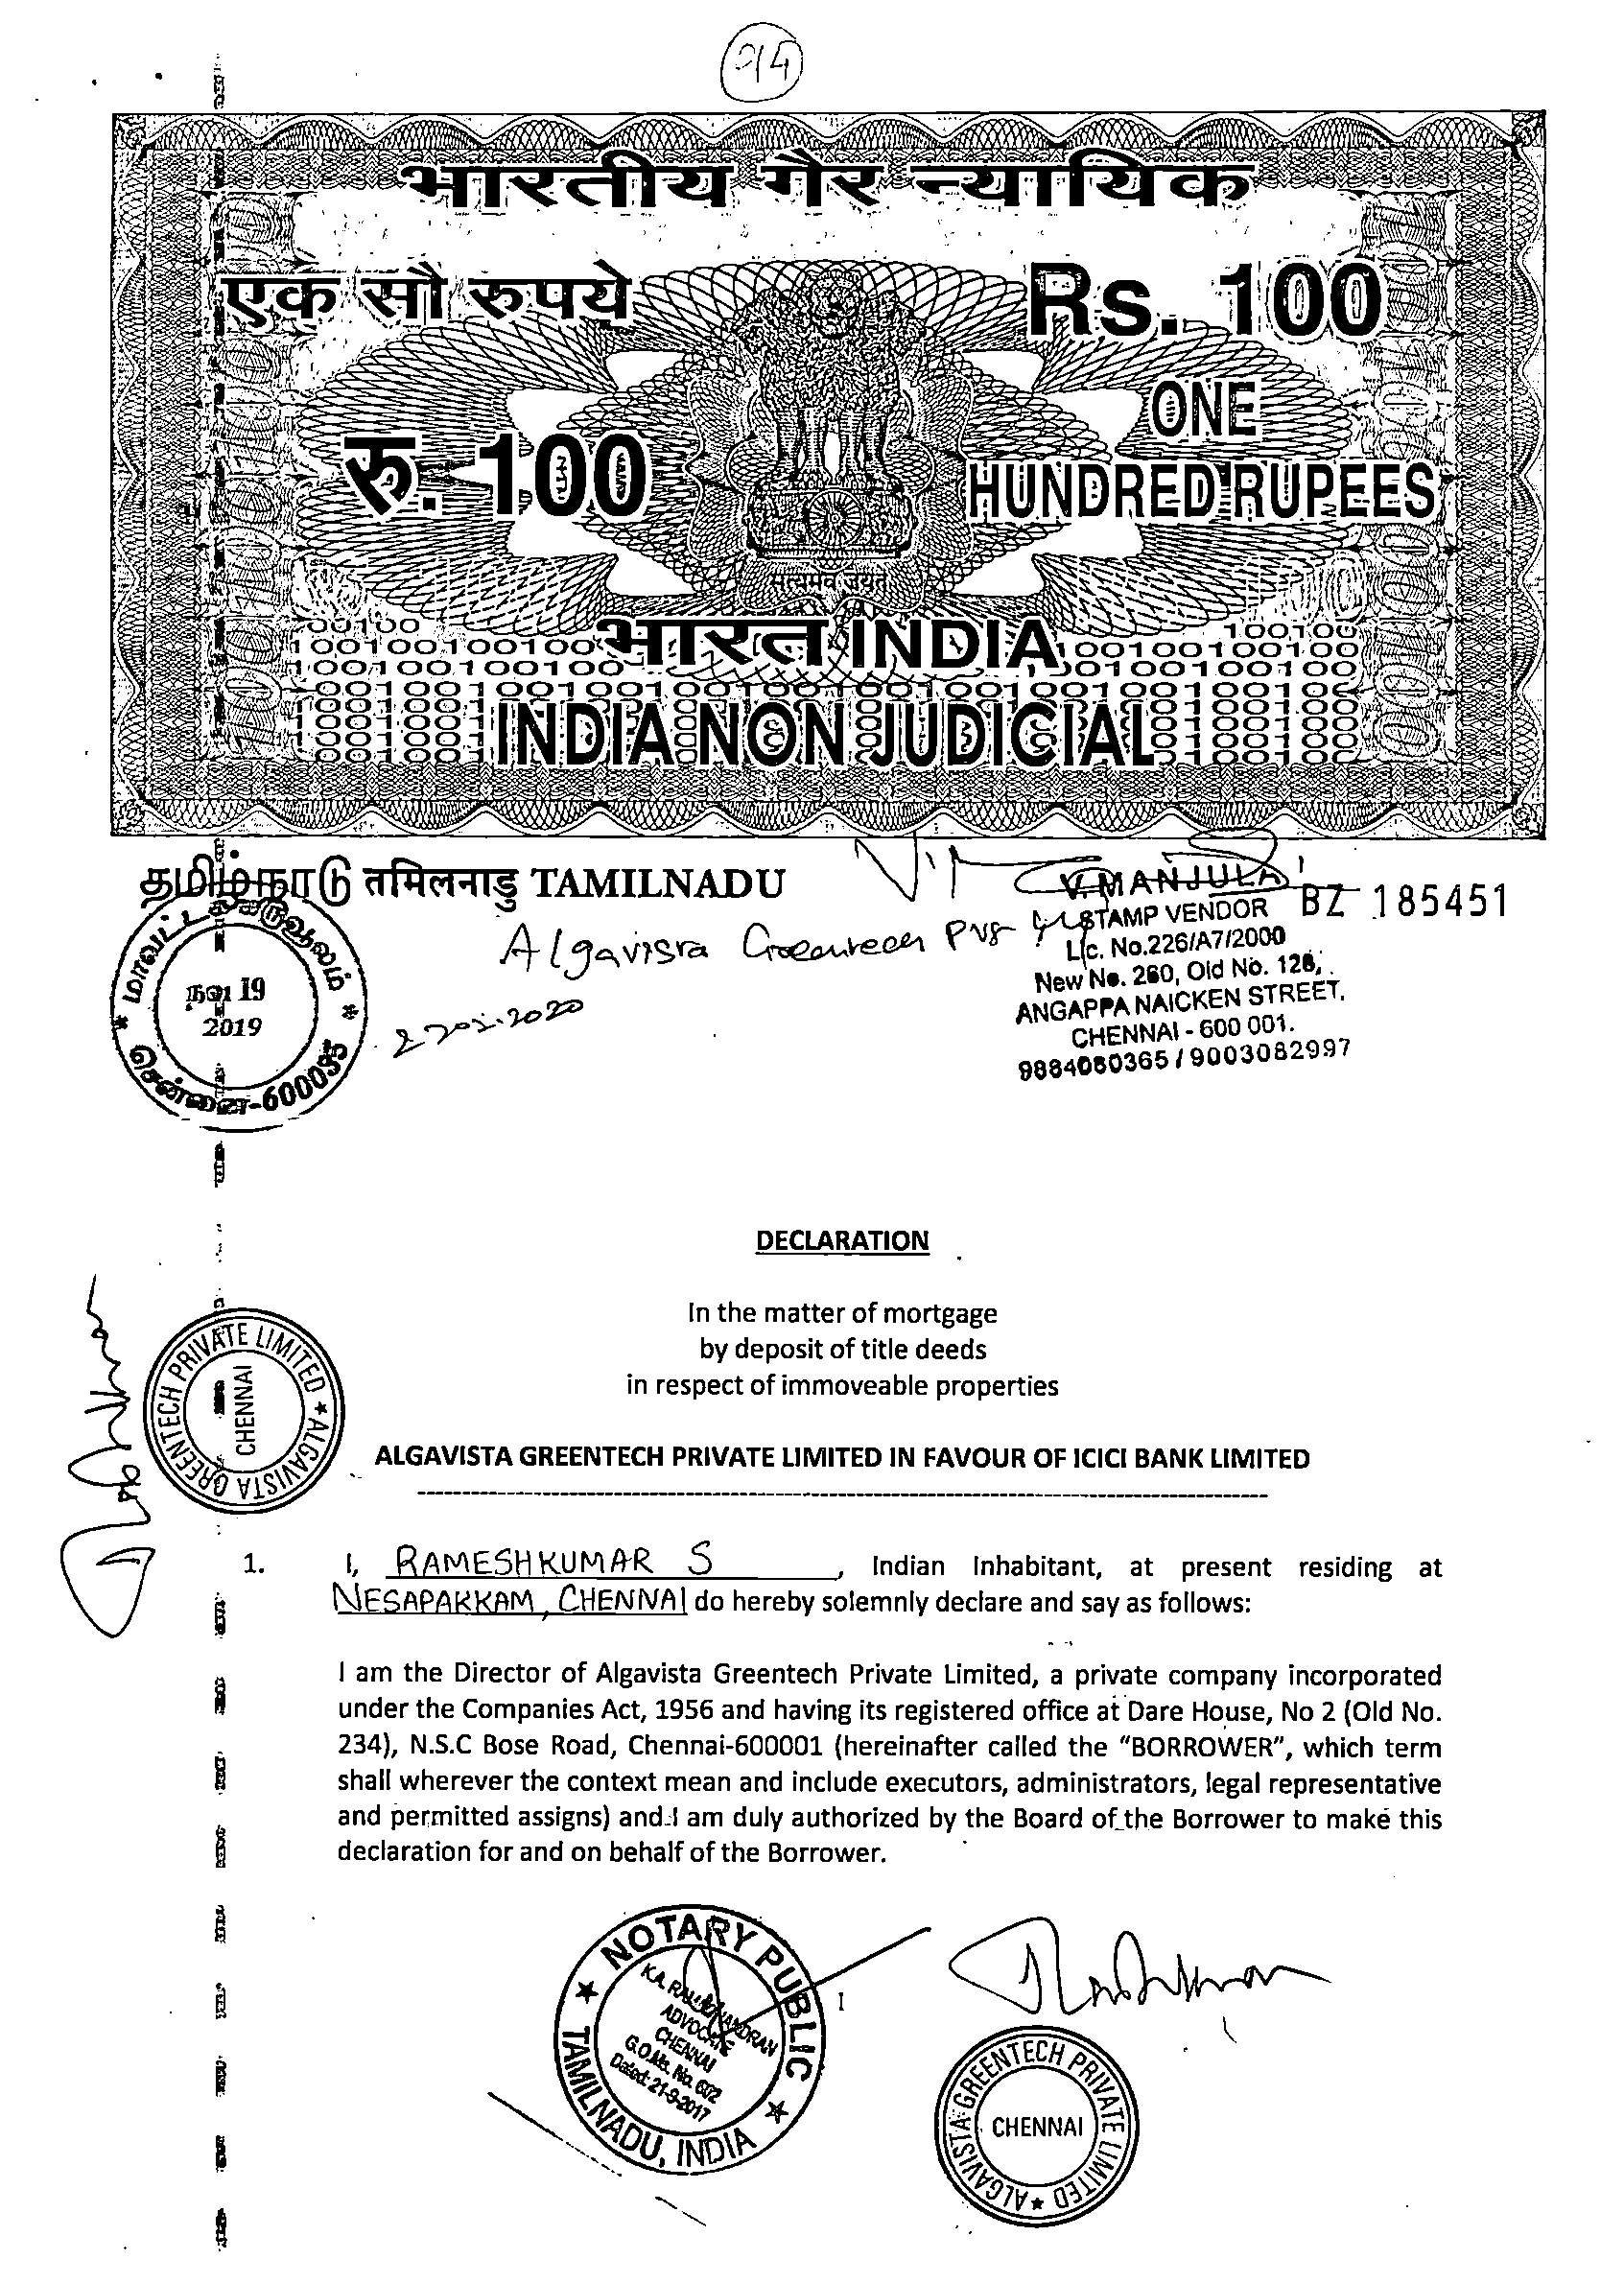 94
भारतीय गैर न्यायिक
एक सौ रुपये
Rs. 100
रु. 100
ONE
HUNDRED RUPEES
सत्यमेव जयते
भारत INDIA
INDIA NON JUDICIAL
தமிழ்நாடு तमिलनाडु TAMILNADU
BZ 185451
V. MANJULA
STAMP VENDOR
Lic. No.226/A7/2000
New No. 260, Old No. 126,
ANGAPPA NAICKEN STREET,
CHENNAI - 600 001.
9884080365 / 9003082997
Algavista Greentech Pvt
2020
நவ 19
2019
சென்னை-600035
DECLARATION
In the matter of mortgage
by deposit of title deeds
in respect of immoveable properties
ALGAVISTA GREENTECH PRIVATE LIMITED IN FAVOUR OF ICICI BANK LIMITED
ALGAVISTA GREENTECH PRIVATE LIMITED
CHENNAI
1. I, RAMESHKUMAR S, Indian Inhabitant, at present residing at
NESAPAKKAM, CHENNAI do hereby solemnly declare and say as follows:
I am the Director of Algavista Greentech Private Limited, a private company incorporated
under the Companies Act, 1956 and having its registered office at Dare House, No 2 (Old No.
234), N.S.C Bose Road, Chennai-600001 (hereinafter called the "BORROWER", which term
shall wherever the context mean and include executors, administrators, legal representative
and permitted assigns) and I am duly authorized by the Board of the Borrower to make this
declaration for and on behalf of the Borrower.
NOTARY PUBLIC
ADVOCATE
CHENNAI
G.O.Ms. No. 602
Dated: 21-9-2017
TAMILNADU, INDIA
1
ALGAVISTA GREENTECH PRIVATE LIMITED
CHENNAI